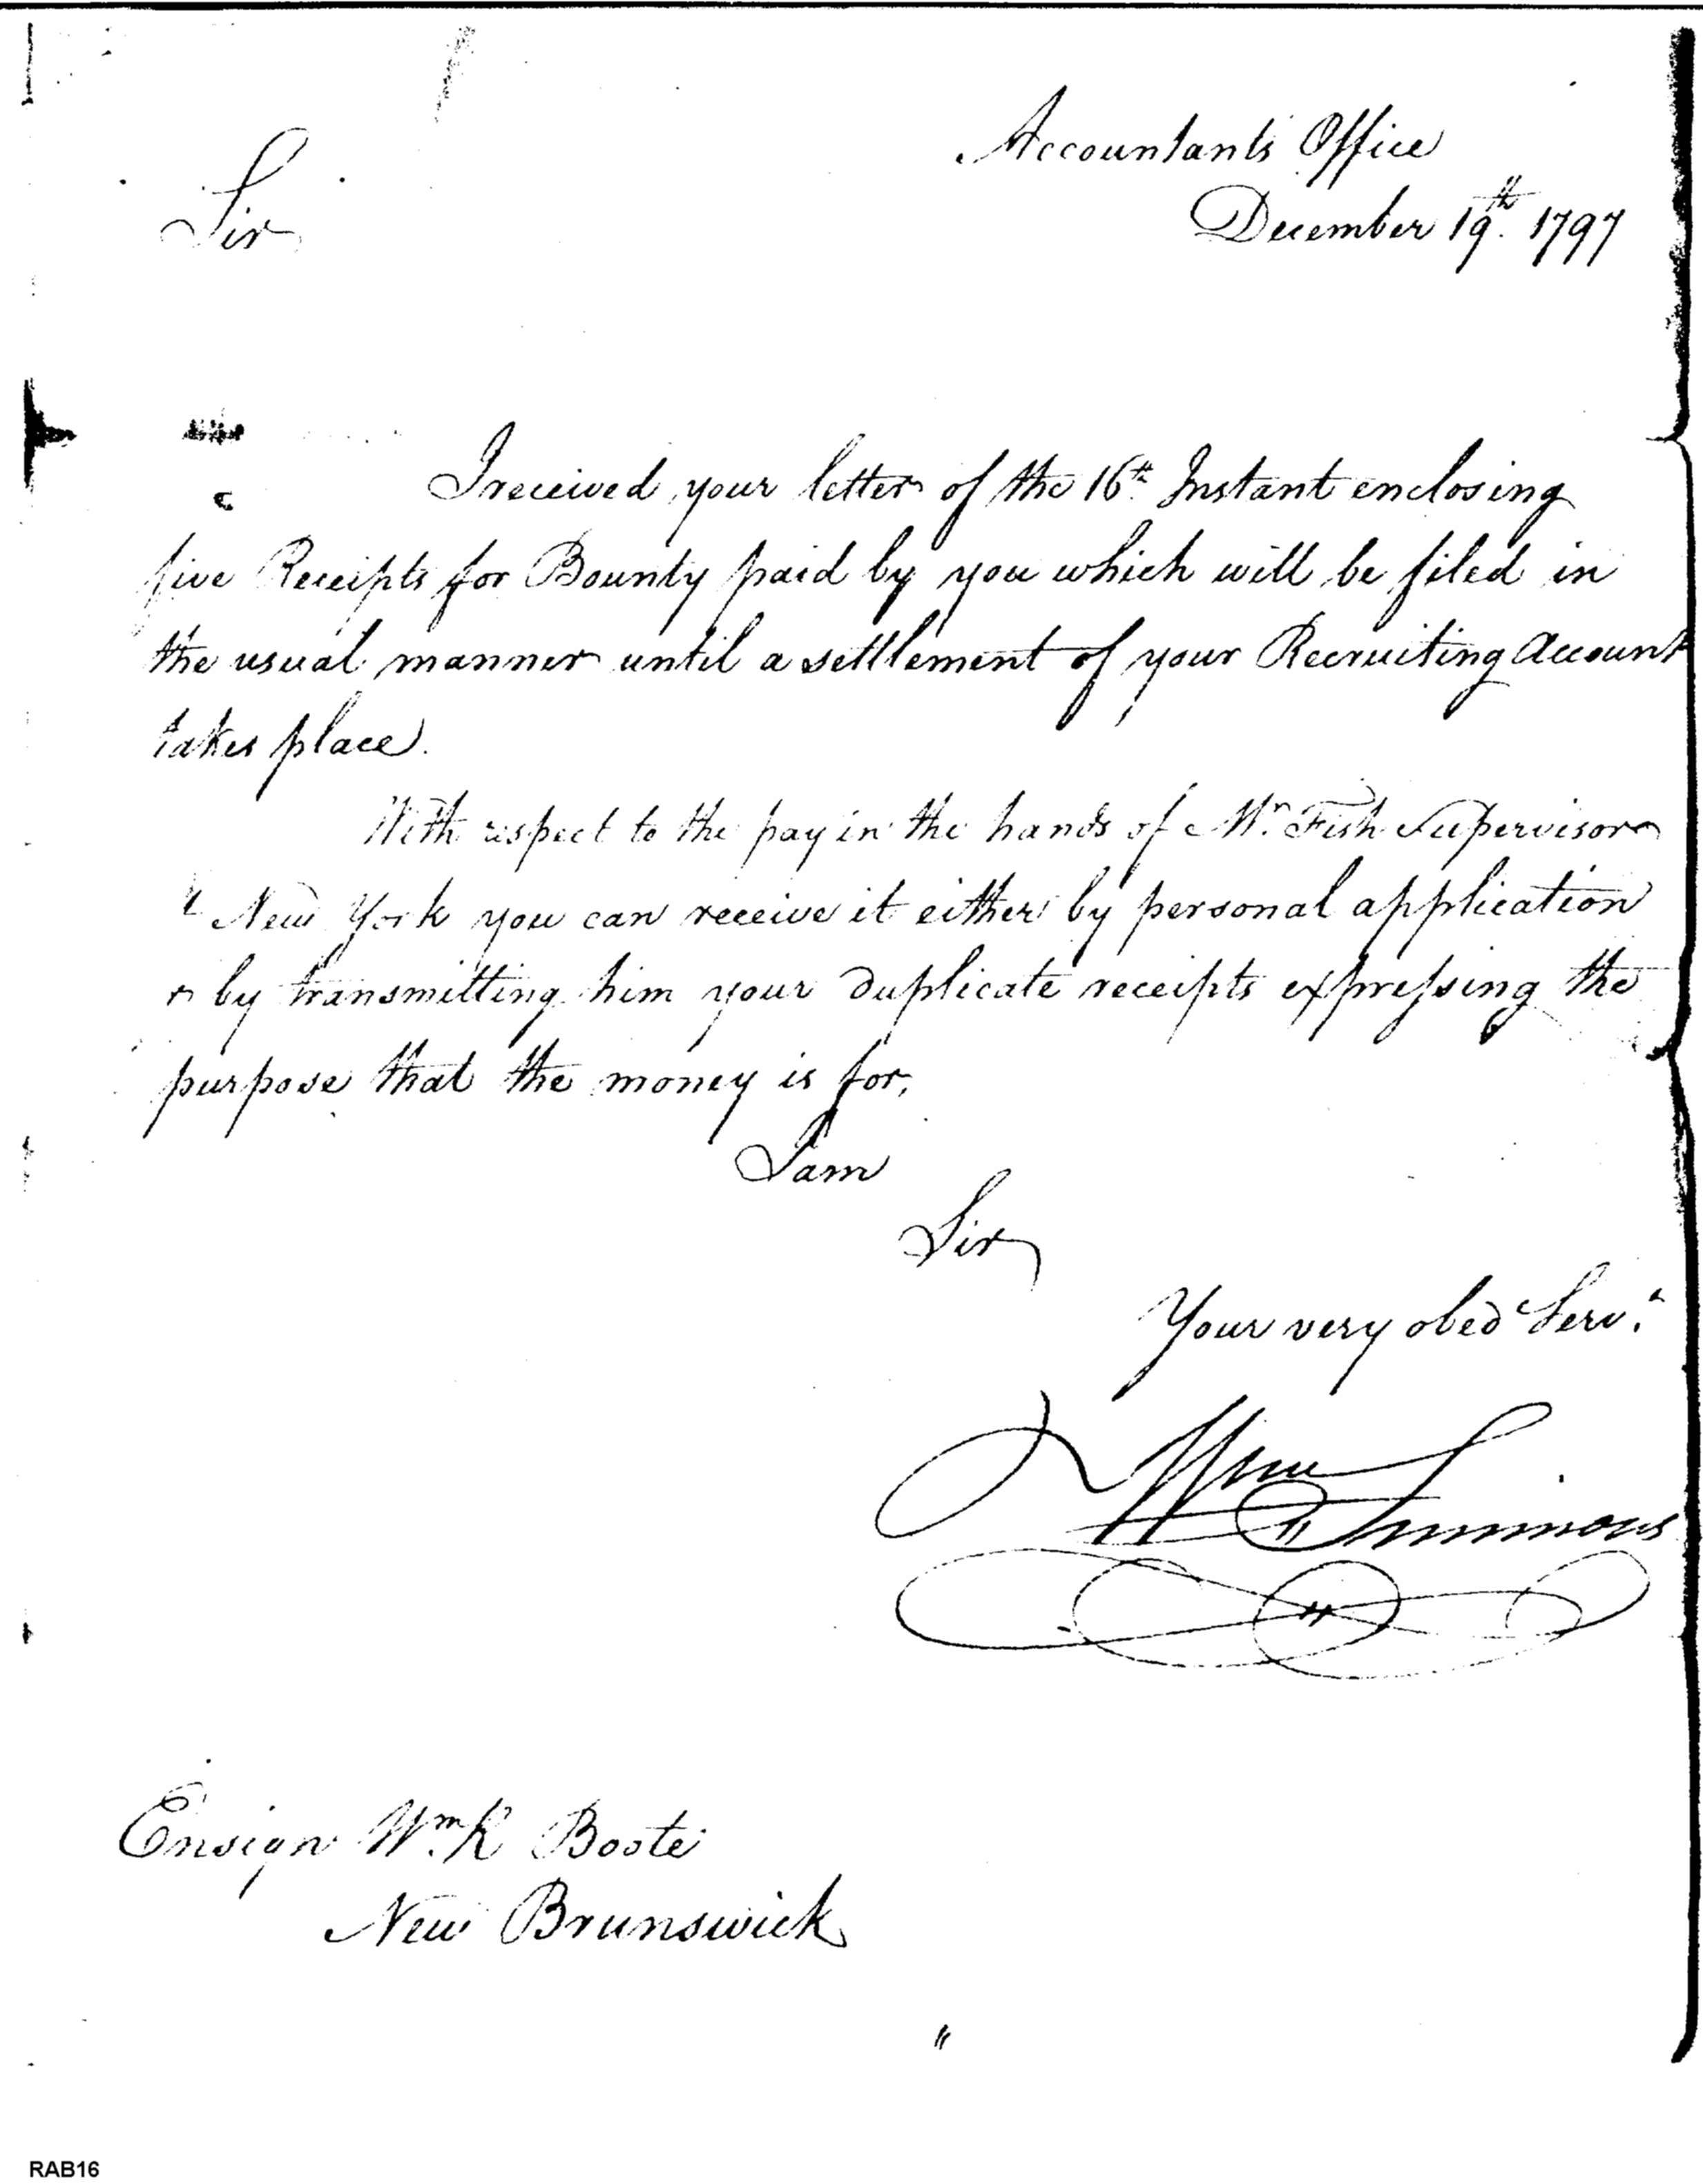 Accountants Office
Sir
December 19th. 1797
I received your letter of the 16th. Instant enclosing
five Receipts for Bounty paid by you which will be filed in
the usual manner until a settlement of your Recruiting Account
takes place.
With respect to the pay in the hands of Mr. Fish Supervisor
t New York you can receive it either by personal application
r by transmitting him your duplicate receipts expressing the
purpose that the money is for,
I am
Sir
Your very obed Servt.
Wm Simmons
Ensign Wm. R Boote
New Brunswick
RAB16